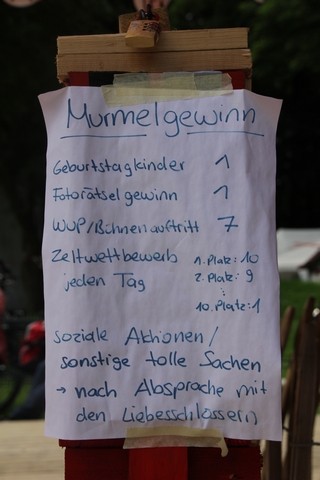 Murmelgewinn
Geburtstagkinder 1
Fotorätselgewinn 1
WUP/Bühnenauftritt 7
Zeltwettbewerb 1. Platz: 10
jeden Tag 2. Platz: 9
⋮
10. Platz: 1
soziale Aktionen/
sonstige tolle Sachen
→ nach Absprache mit
den Liebesschlössern